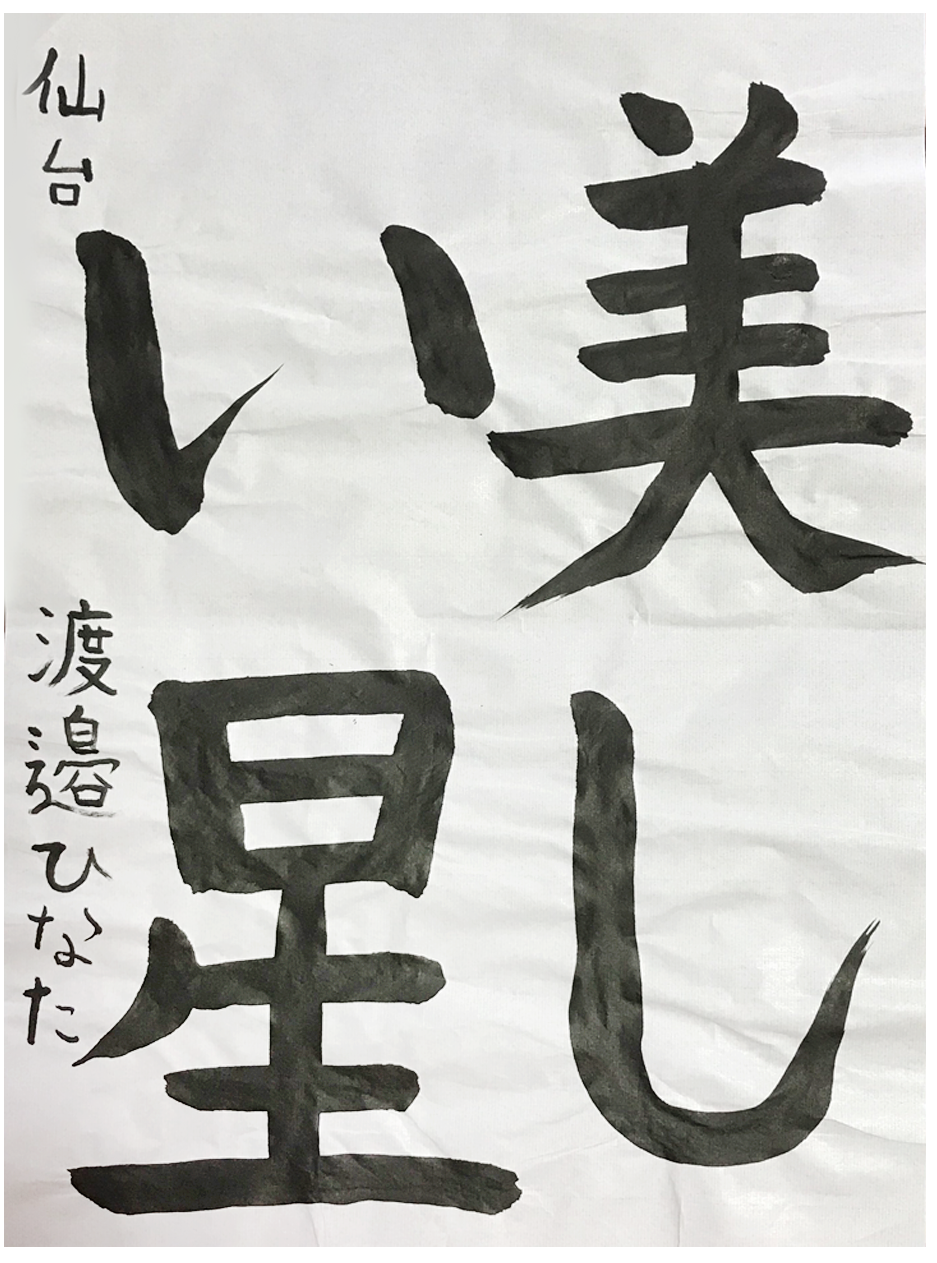 美し
い星
仙台 渡邉ひなた